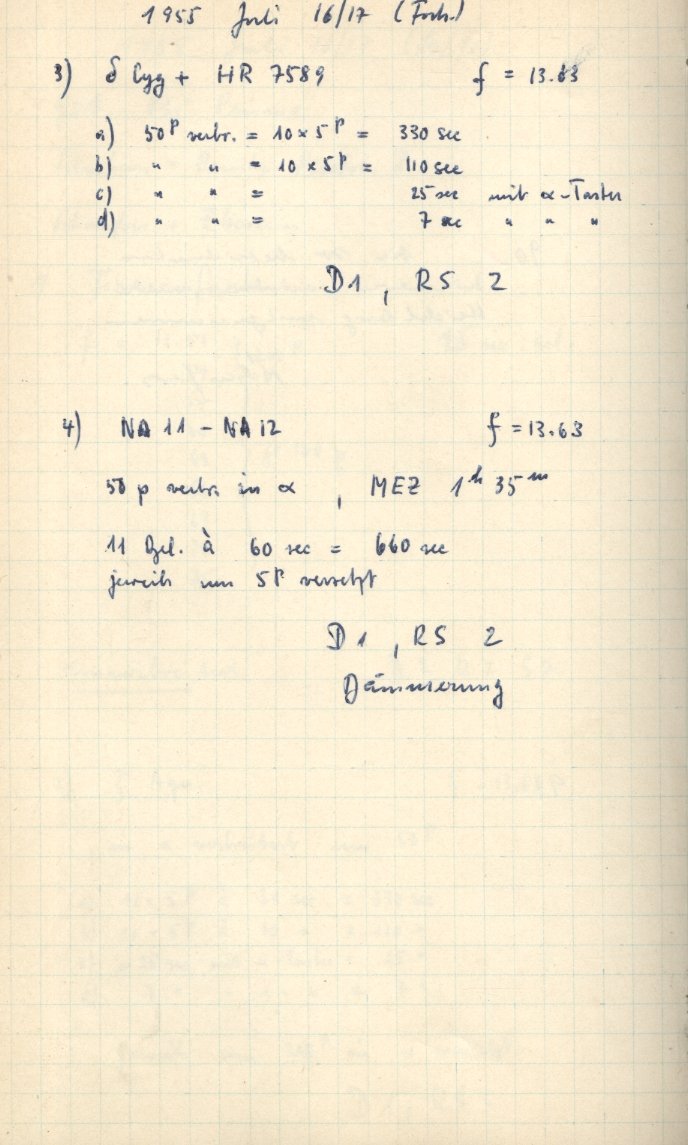 1955 Juli 16/17 (Forts.)
3) δ Cyg + HR 7589 f = 13.63
a) 50ᵖ verbr. = 10 × 5ᵖ = 330 sec
b) " " = 10 × 5ᵖ = 110 sec
c) " " = 25 sec mit α-Taster
d) " " = 7 sec " " "
D1, RS 2
4) NA 11 - NA 12 f = 13.63
50 p verbr. in α, MEZ 1ʰ 35ᵐ
11 Bel. à 60 sec = 660 sec
jeweils um 5ᵖ versetzt
D1, RS 2
Dämmerung